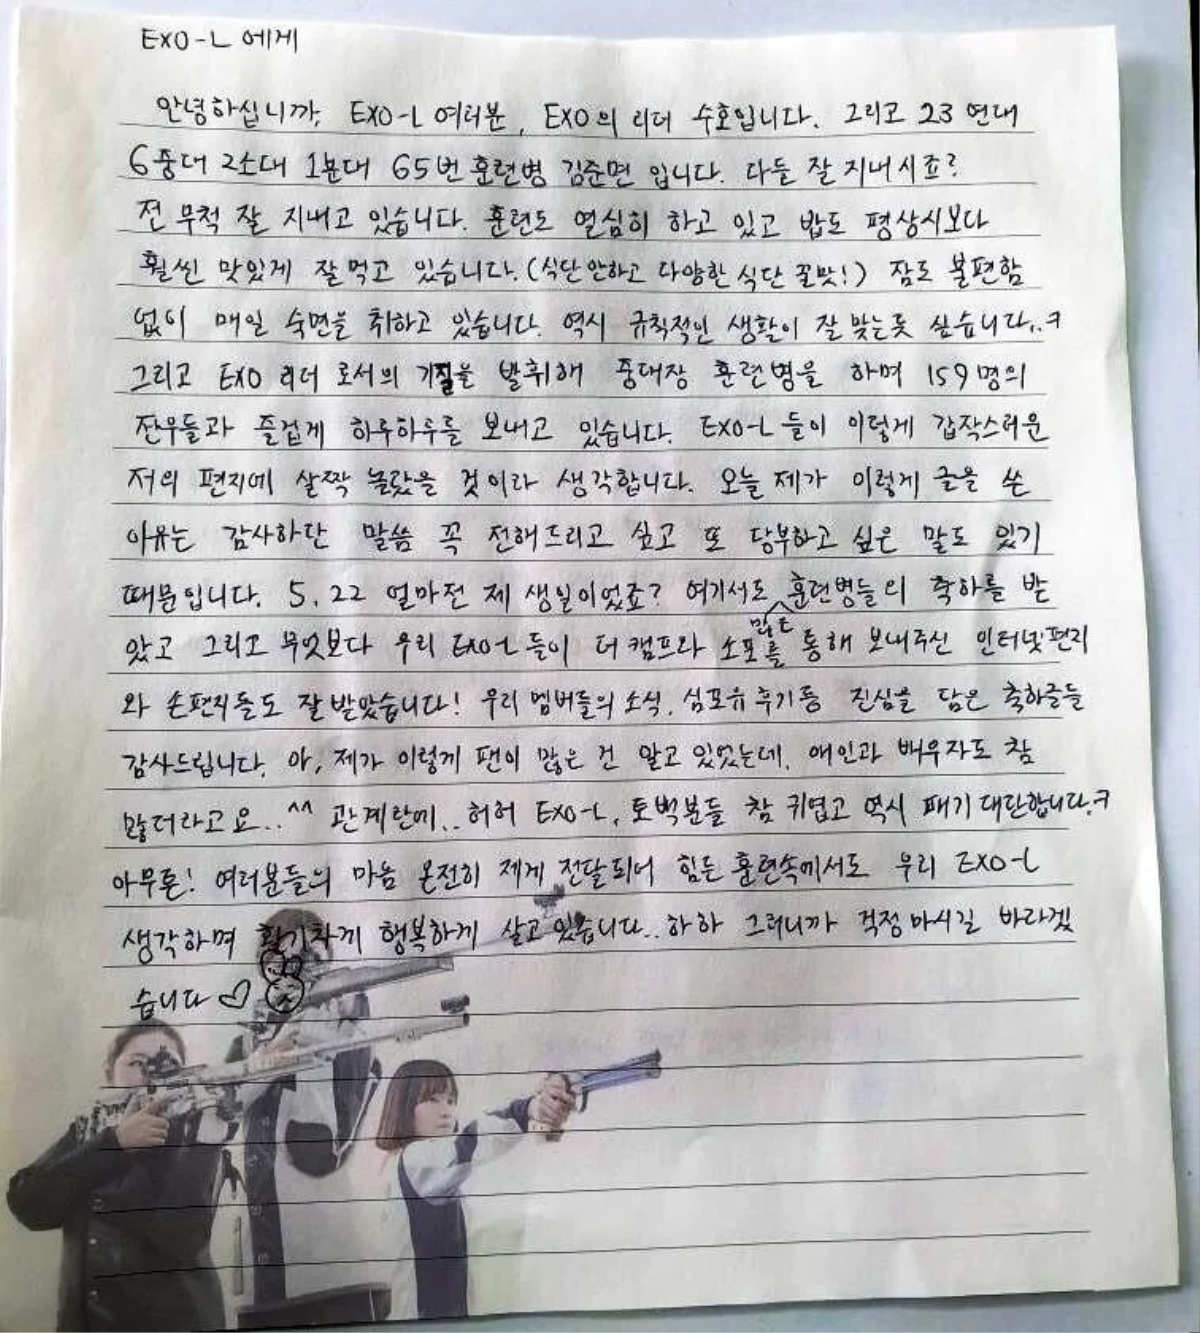 EXO-L 에게
안녕하십니까, EXO-L 여러분, EXO의 리더 수호입니다. 그리고 23 연대
6중대 2소대 1분대 65번 훈련병 김준면 입니다. 다들 잘 지내시죠?
전 무척 잘 지내고 있습니다. 훈련도 열심히 하고 있고 밥도 평상시보다
훨씬 맛있게 잘 먹고 있습니다.(식단안하고 다양한 식단 꿀맛!) 잠도 불편함
없이 매일 숙면을 취하고 있습니다. 역시 규칙적인 생활이 잘 맞는듯 싶습니다..ㅋ
그리고 EXO 리더 로서의 기질을 발휘해 중대장 훈련병을 하며 159명의
전우들과 즐겁게 하루하루를 보내고 있습니다. EXO-L 들이 이렇게 갑작스러운
저의 편지에 살짝 놀랐을 것이라 생각합니다. 오늘 제가 이렇게 글을 쓴
이유는 감사하단 말씀 꼭 전해드리고 싶고 또 당부하고 싶은 말도 있기
때문입니다. 5.22 얼마전 제 생일이었죠? 여기서도 많은 훈련병들의 축하를 받
았고 그리고 무엇보다 우리 EXO-L 들이 더캠프와 소포를 통해 보내주신 인터넷편지
와 손편지들도 잘 받았습니다! 우리 멤버들의 소식, 심포유 후기등 진심을 담은 축하글들
감사드립니다. 아, 제가 이렇게 팬이 많은 건 알고 있었는데, 애인과 배우자도 참
많더라고요..^^ 관계란에.. 허허 EXO-L, 토백분들 참 귀엽고 역시 패기 대단합니다.ㅋ
아무튼! 여러분들의 마음 온전히 제게 전달되어 힘든 훈련속에서도 우리 EXO-L
생각하며 활기차게 행복하게 살고 있습니다.. 하하 그러니까 걱정마시길 바라겠
습니다 ♡